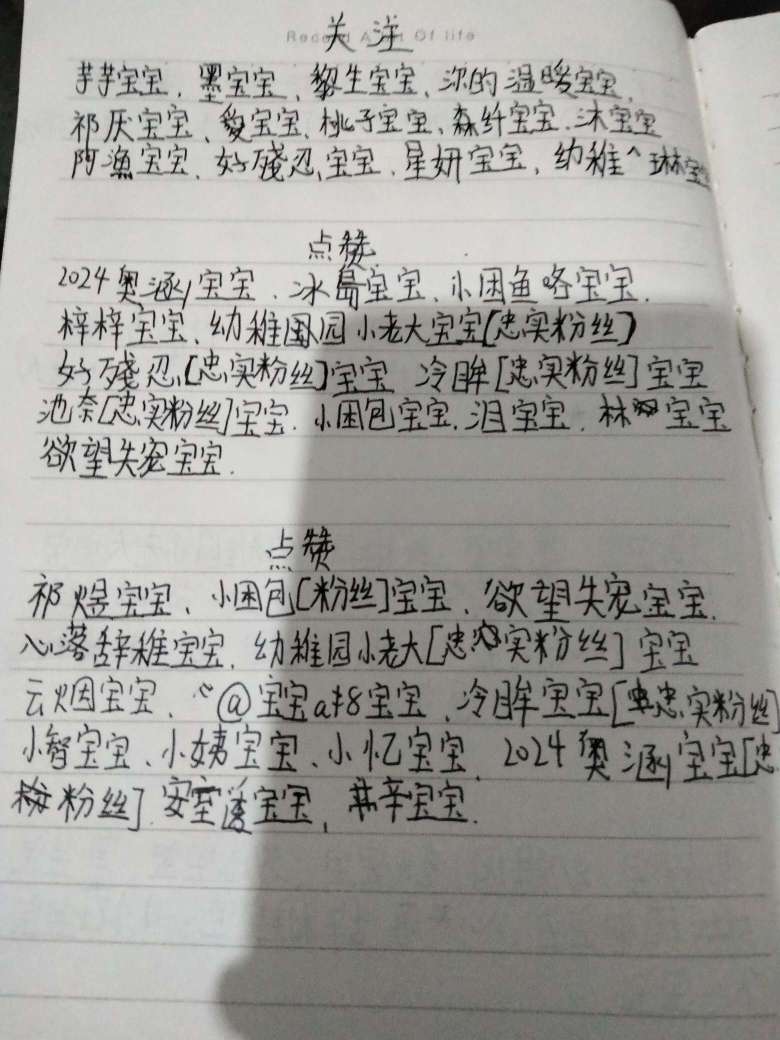 关注
芋芋宝宝、墨宝宝、黎生宝宝、沵的温暖宝宝、
祁厌宝宝、爱宝宝、桃子宝宝、森纤宝宝、沐宝宝
阿漁宝宝、好殘忍宝宝、星妍宝宝、幼稚^琳宝
点赞
2024奥涵宝宝、冰島宝宝、小困鱼咯宝宝、
梓梓宝宝、幼稚园小老大宝宝[忠实粉丝]
好殘忍[忠实粉丝]宝宝 冷眸[忠实粉丝]宝宝
池奈[忠实粉丝]宝宝、小困包宝宝、泪宝宝、林宝宝
欲望失宠宝宝、
点赞
祁煜宝宝、小困包[粉丝]宝宝、欲望失宠宝宝、
心落辞稚宝宝、幼稚园小老大[忠实粉丝]宝宝
云烟宝宝、@宝宝a48宝宝、冷眸宝宝[忠实粉丝]
小智宝宝、小姨宝宝、小忆宝宝、2024奥涵宝宝[忠
粉丝]、安宝宝、宝宝、